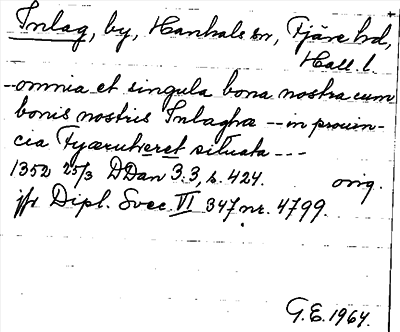 Inlag, by, Hanhals sn, Fjäre hd,
Hall. l.
-omnia et singula bona nostra cum
bonis nostris Inlagha -- in prouin-
cia Fyæruheret situata ---
1352 25/3 DDan 3:3, s. 424. orig.
jfr Dipl. Svec. VI 347 nr. 4799.
G.E. 1964.